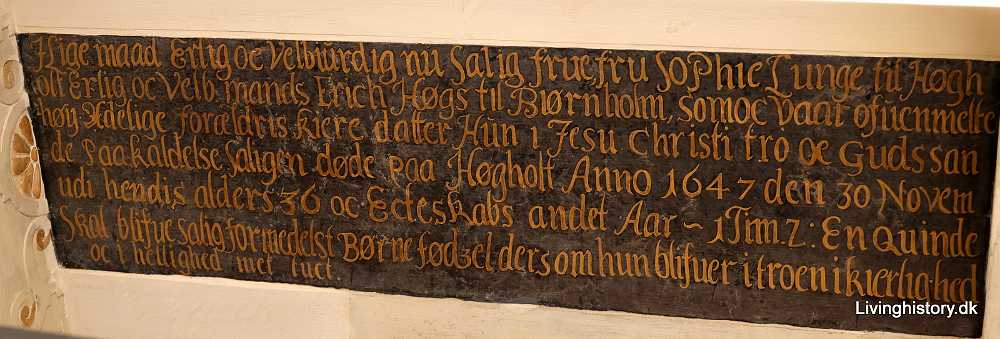 Hige maad Erlig oc Velbiurdig nu Salig frue fru Sophie Lunge til Høgh
olt Erlig oc Velb mands Erich Høgs til Biørnholm, som oc vaar ofuenmelte
høy Adelige forældris kiere datter Hun i Jesu Christi tro oc Guds san
de Paakaldelse Saligen døde paa Høgholt Anno 1647 den 30 Novem
udi hendis alders 36 oc Ecteskabs andet Aar ~ 1 Tim. 2: En Quinde
Skal blifue Salig formedelst Børne fødzel dersom hun blifuer i troen i kierlighed
oc i hellighed met tuct
Livinghistory.dk